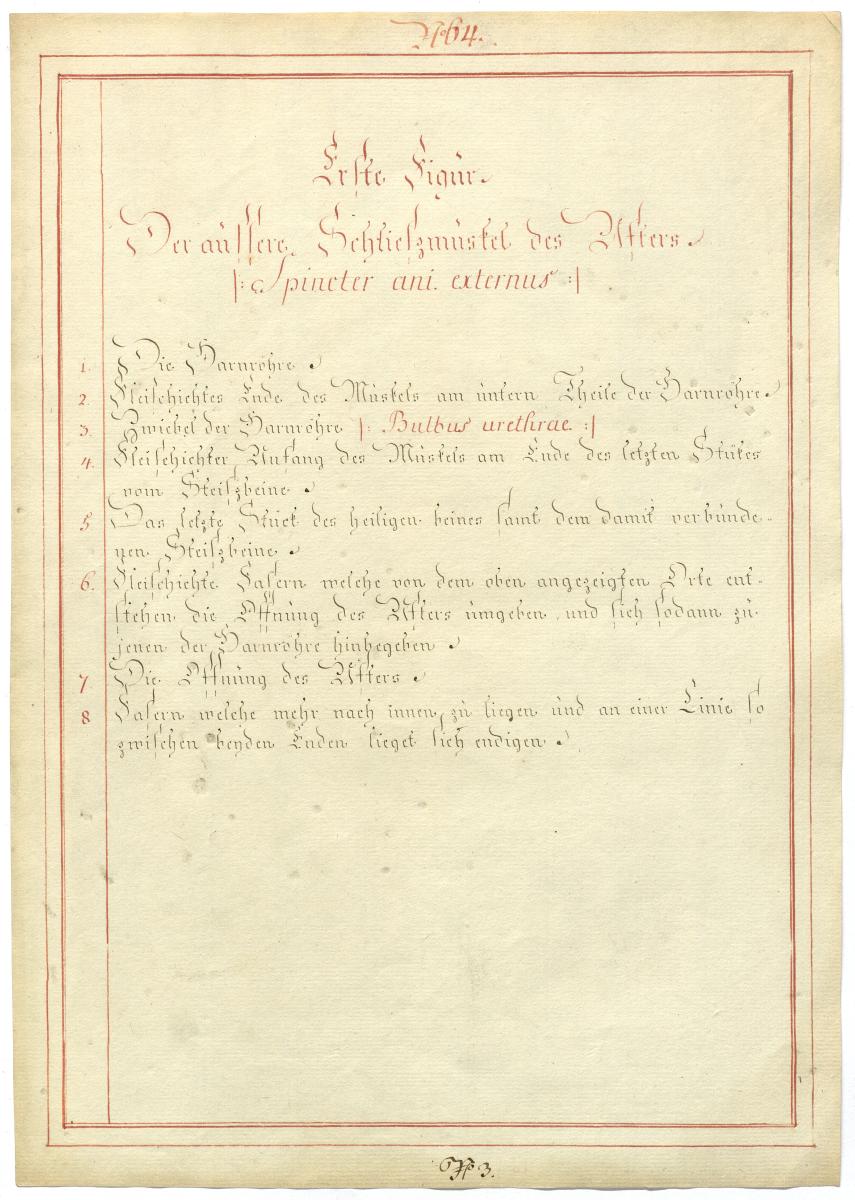 No 64.
Erste Figur.
Der äussere Schlieszmuskel des Afters.
|: Spincter ani externus :|
1. Die Harnröhre.
2. Fleischichtes Ende des Muskels am untern Theile der Harnröhre.
3. Zwiebel der Harnröhre |: Bulbus urethrae :|
4. Fleischichter Anfang des Muskels am Ende des letzten Stükes
vom Steiszbeine.
5 Das letzte Stück des heiligen beines samt dem damit verbunde-
nen Steiszbeine.
6. Fleischichte Fasern welche von dem oben angezeigten Orte ent-
stehen die Öffnung des Afters umgeben, und sich sodann zu
jenen der Harnröhre hinbegeben.
7. Die Öffnung des Afters.
8 Fasern welche mehr nach innen zu liegen und an einer Linie so
zwischen beyden Enden lieget sich endigen.
No 3.